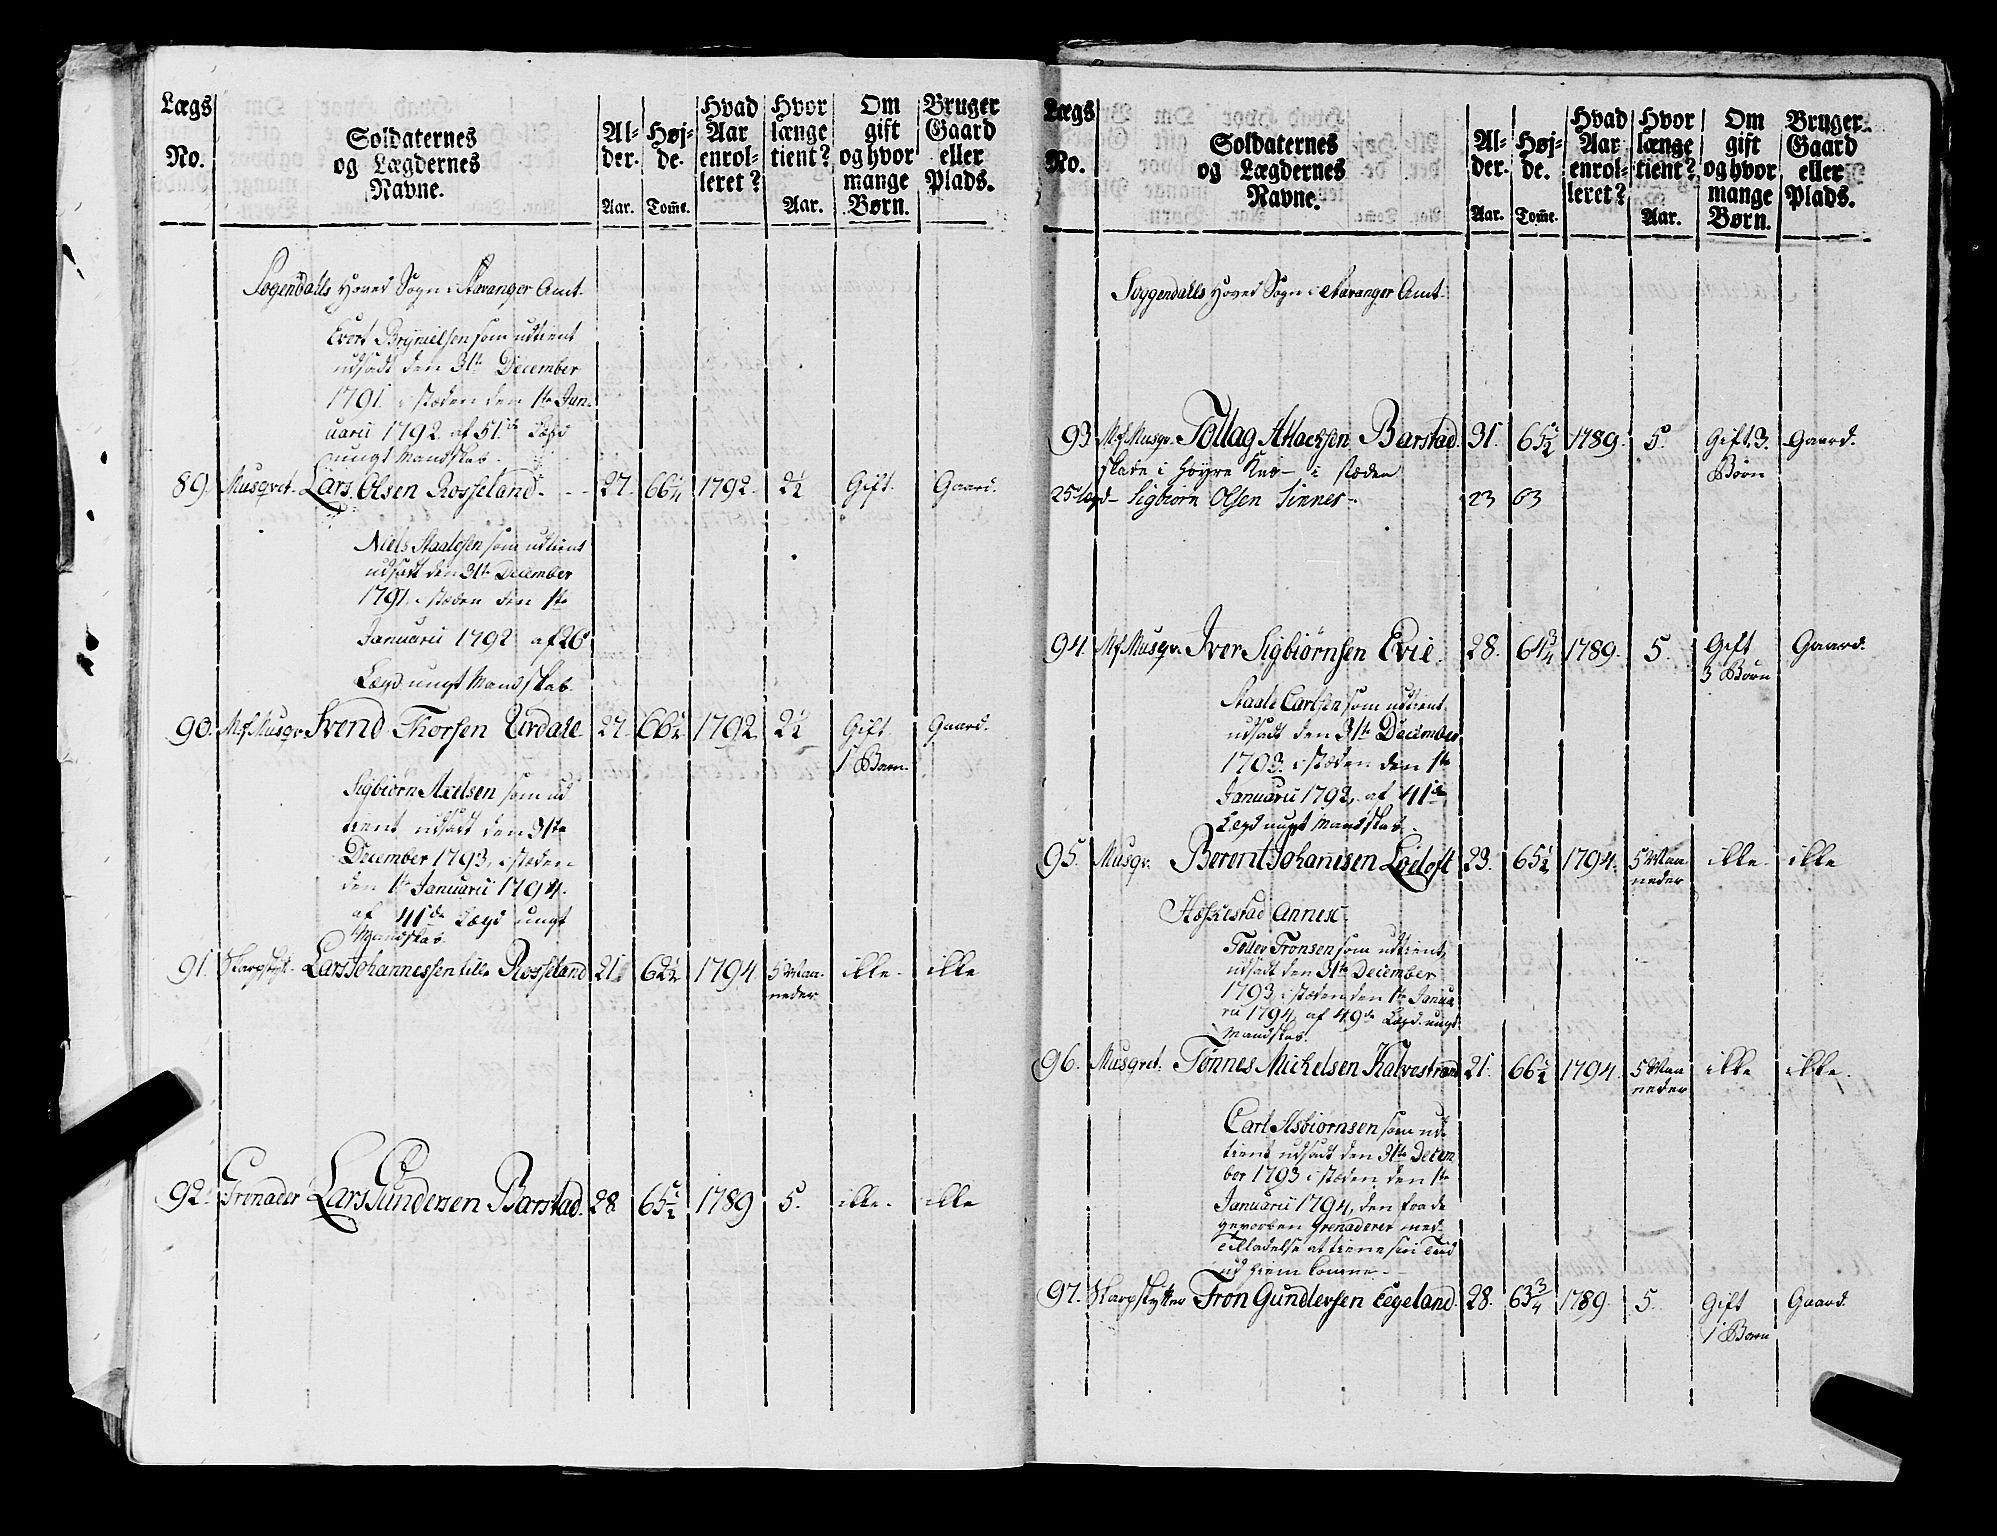 Lægs No.
Soldaternes og Lægdernes Navne.
Al-der. Aar.
Høj-de. Tom̄e.
Hvad Aar enrol-leret?
Hvor længe tient? Aar.
Om gift og hvor mange Børn.
Bruger Gaard eller Plads.
Sogendalls Hoved Sogn i Stavanger Amt.
Evert Brynielsen som udtient
udsadt den 31te December
1791. i stæden den 1te Jan-
uarii 1792 af 51de Lægd
ungt Mandskab.
89. Musqvet. Lars Olsen Rosseland. 27. 66¼ 1792. 2½ Gift. Gaard.
Niels Staalesen som udtient
udsadt den 31te December
1791, i stæden den 1te
Januarii 1792 af 26
Lægd ungt Mandskab.
90. Mf. Musqv. Svend Thorsen Urdale 27. 66½ 1792. 2½ Gift Gaard.
1 Barn.
Sigbiørn Axelsen som ud
tient udsadt den 31te
December 1793, i stæden
den 1te Januarii 1794.
af 41de Lægd ungt
Mandskab.
91. Skarpskyt. Lars Johannessen lille Rosseland 21. 62½ 1794 5 Maa- ikke. ikke
neder
92. Grenader Lars Gundersen Barstad. 28. 65½ 1789 5. ikke. ikke
Lægs No.
Soldaternes og Lægdernes Navne.
Al-der. Aar.
Høj-de. Tom̄e.
Hvad Aar enrol-leret?
Hvor længe tient? Aar.
Om gift og hvor mange Børn.
Bruger Gaard eller Plads.
Soggendalls Hoved Sogn i Stavanger Amt.
93 Mf. Musqv. Tollag Atlacksen Barstad. 31. 65½ 1789. 5. Gift. 3. Gaard.
skade i høyre Knæ i stæden Børn
25 Lægd Sigbiørn Olsen Sinnes 23 63
94 Mf. Musqv. Iver Sigbiørnsen Evie. 28. 64¾ 1789. 5. Gift Gaard.
3 Børn
Staale Carlsen som udtient
udsadt den 31te December
1793. i stæden den 1te
Januarii 1793, af 41de
Lægd ungt Mandskab.
95. Musqv. Berent Johanesen Løeloft 23. 65½ 1794. 5 Maa ikke. ikke
neder
Heskestad Annex
Toller Tronsen som udtient,
udsadt den 31te December
1793, i stæden den 1te Janua
rii 1794, af 49de Lægd. ungt
Mandskab.
96. Musqvet. Tønnes Mickelsen Kalvestrand 21. 66½ 1794. 5 Maa ikke ikke.
neder
Carl Asbiørnsen som ud-
tient udsadt den 31te Decem
ber 1793 i stæden den 1te
Januarii 1794, den fra de
gevorben Grenaderer med
Tilladelse at tiene sin Tiid
ud hiem komne.
97. Skarpskytter Tron Gundlersen Eegeland. 28. 63¾ 1789. 5. Gift Gaard.
1 Barn